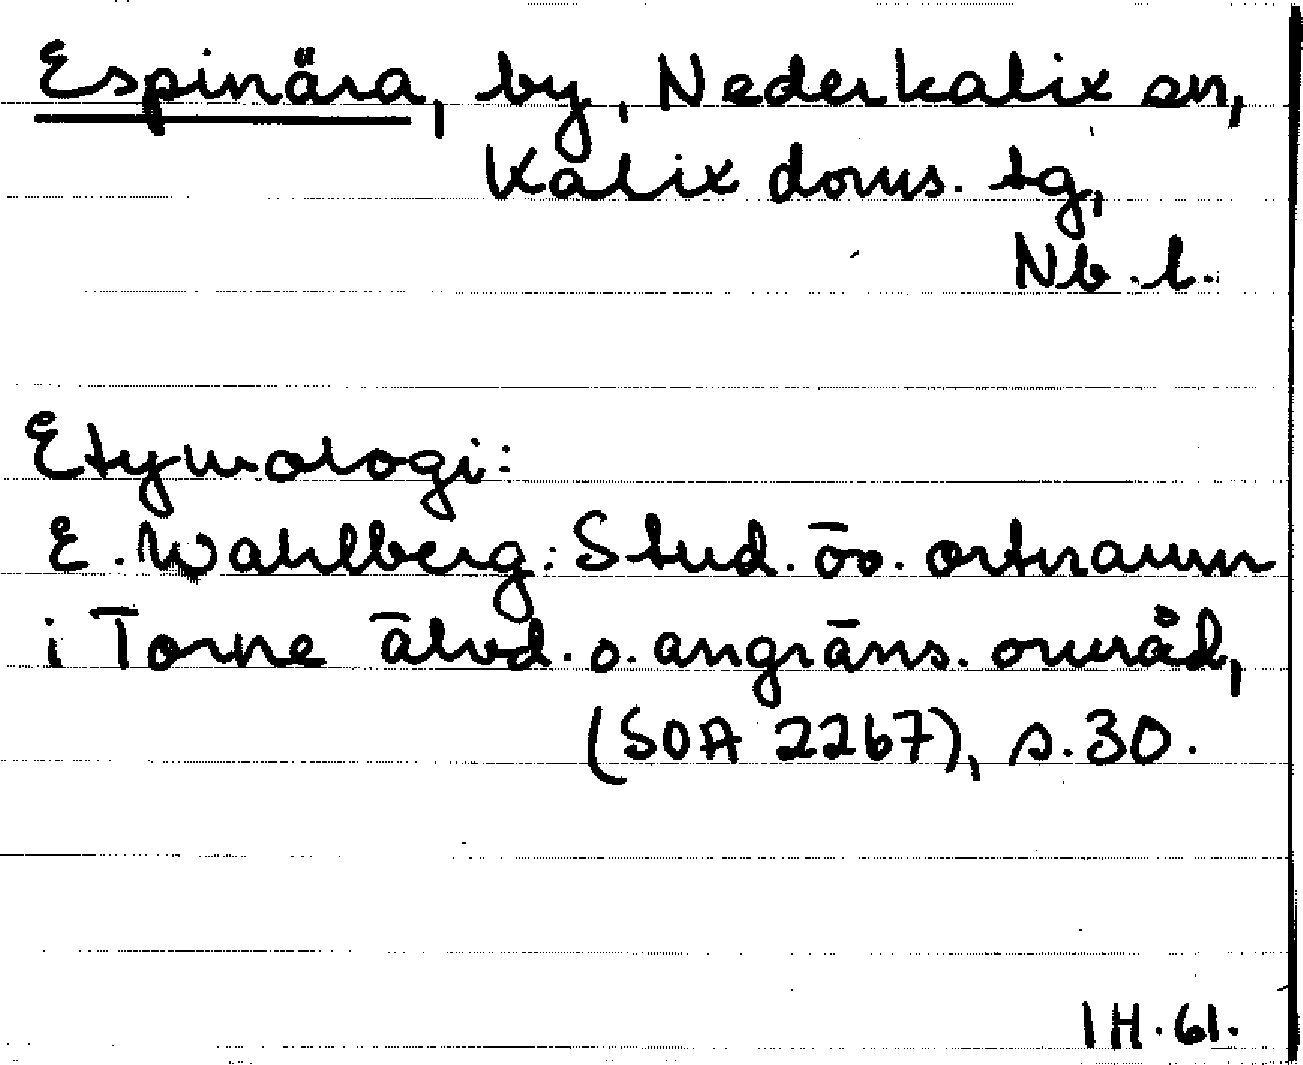 Espinära, by, Nederkalix sn,
Kalix doms. tg,
Nb. l.
Etymologi:
E. Wahlberg: Stud. öv. ortnamn
i Torne älvd. o. angräns. område,
(SOA 2267), s. 30.
IH. 61.